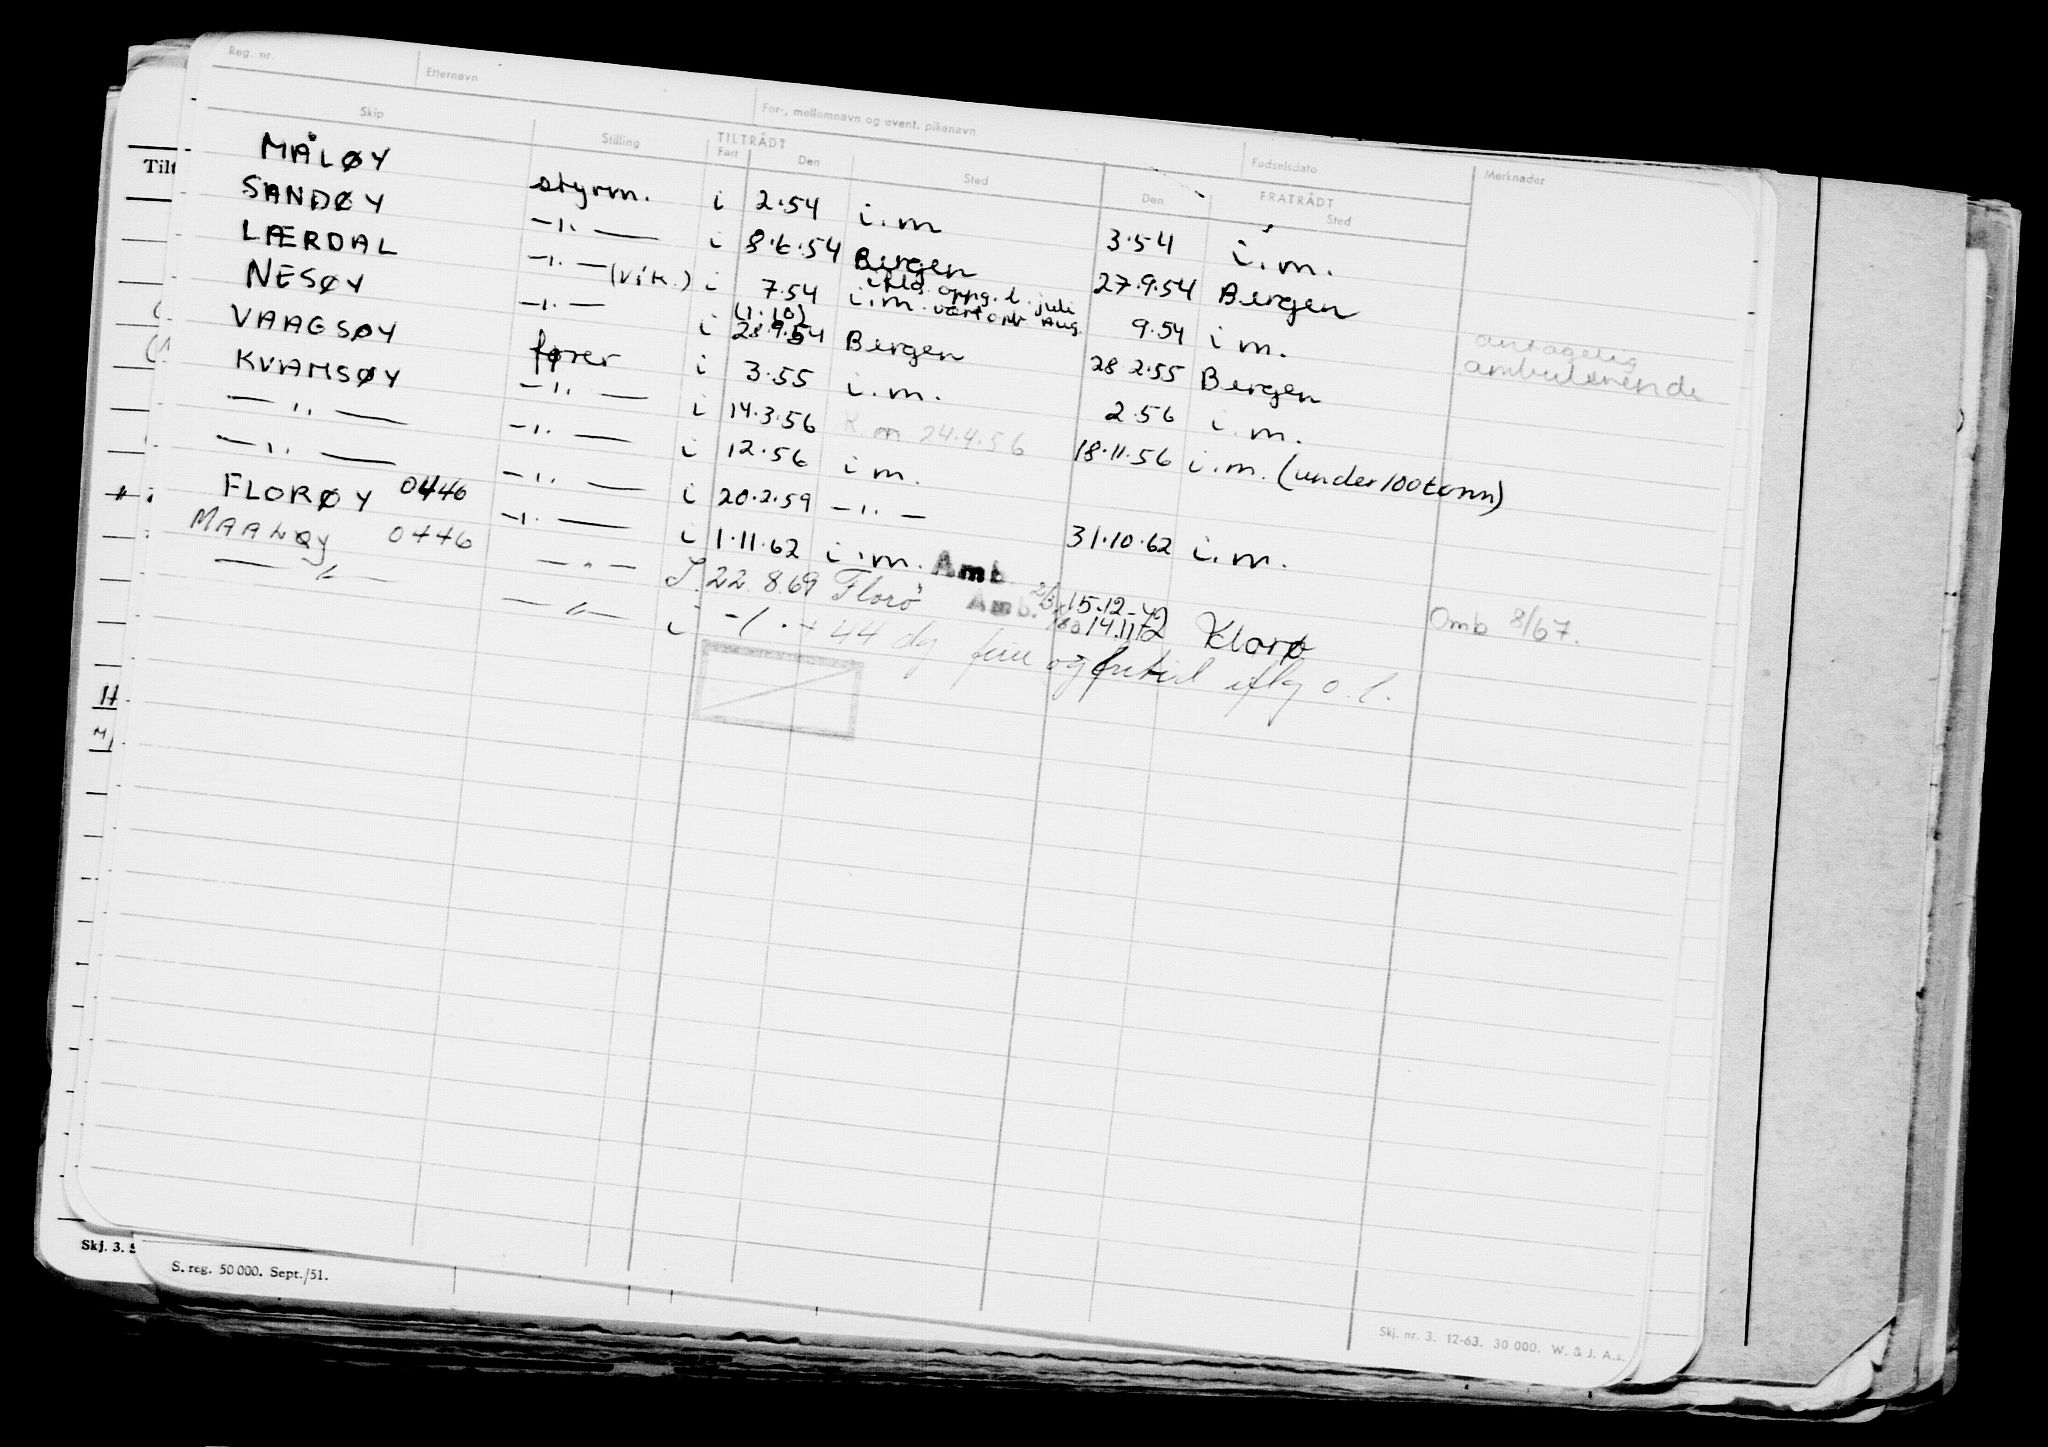 Reg. nr. Etternavn For-, mellomnavn og event. pikenavn Fødselsdato
Skip Stilling TILTRÅDT FRATRÅDT Merknader
Fart Den Sted Den Sted
MÅLØY styrm. i 2.54 i.m 3.54 i.m.
SANDØY -"- i 8.6.54 Bergen 27.9.54 Bergen
LÆRDAL -"- (vik.) i 7.54 i.m. iflg. oppg. l. juli 9.54 i m. antagelig
NESØY -"- i (1.10) 28.9.54 Bergen 28 2.55 Bergen ambulerende
VAAGSØY fører i 3.55 i.m. 2.56 i.m.
KVAMSØY -"- i 14.3.56 R.m 24.4.56 18.11.56 i.m. (under 100 tonn)
-"- -"- i 12.56 i m.
-"- -"- i 20.2.59 -"- 31.10.62 i.m.
FLORØY 0446 -"- i 1.11.62 i.m. Amb. 15.12- Omb 8/67.
MAALØY 0446 -"- I. 22.8.69 Florø Amb. 14.11.72 Florø
-"- -"- i -/. + 44 dg ferie og fritid iflg o.l.
Tilt
Skj. 3.
S. reg. 50 000. Sept./51.
Skj. nr. 3. 12-63. 30 000. W. & J. A.s.